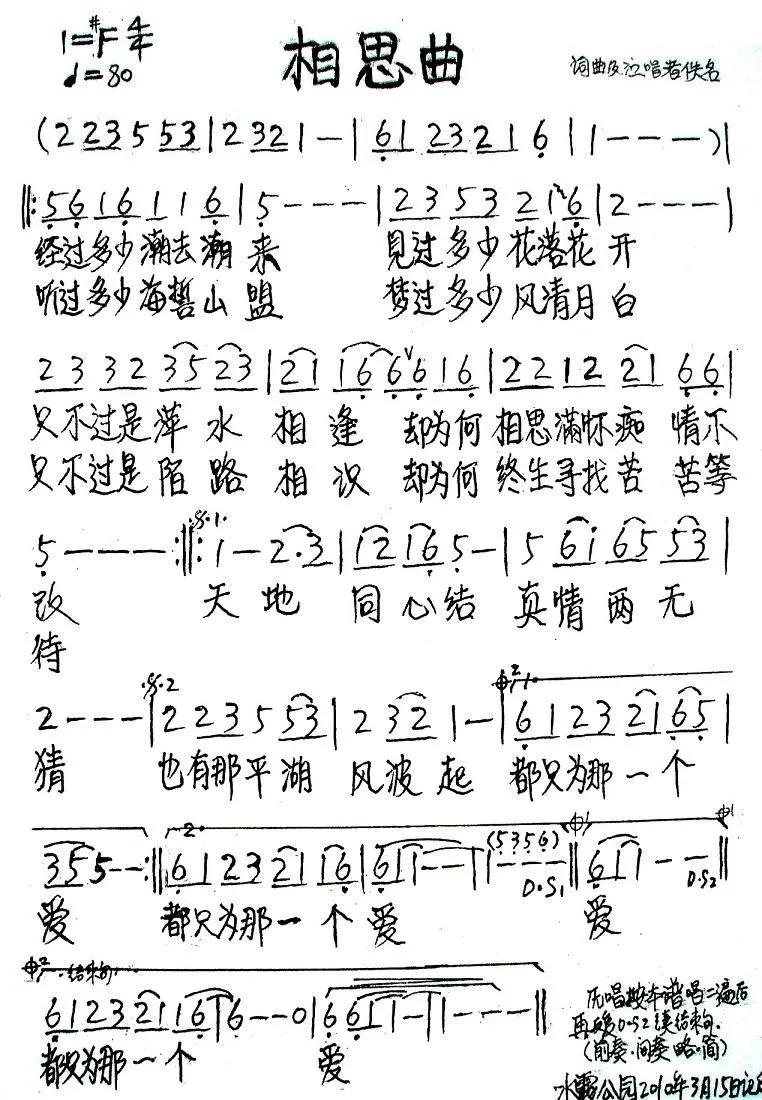 1=#F 4/4
♩=80
相思曲
词曲及泣唱者佚名
(2 2 2 3 5 5 3 | 2 3 2 1 — | 6 1 2 3 2 1 6 | 1 — — —)|
‖: 5 6 1 6 1 1 6 | 5 — — — | 2 3 5 3 2 1 6 | 2 — — — |
经过多少潮去潮来 見过多少花落花开
听过多少海誓山盟 梦过多少风清月白
2 3 3 2 3 5 2 3 | 2 1 1 6 6 6 1 6 | 2 2 1 2 2 1 6 6 |
只不过是萍水相逢 却为何相思满怀痴情不
只不过是陌路相识 却为何终生寻找苦苦等
5 — — — :‖: 1 — 2·3 | 1 2 1 6 5 — | 5 6 1 6 5 5 3 |
改 天地同心结 真情两无
待
2 — — — | 2 2 3 5 5 3 | 2 3 2 1 — | 6 1 2 3 2 1 6 5 |
猜 也有那平湖风波起 都只为那一个
3 5 5 — — :‖ 6 1 2 3 2 1 1 6 | 6 1 1 — — | 1 — — — (5 3 5 6) D.S1 ‖ 6 1 1 — — D.S2 ‖
爱 都只为那一个爱 爱
结束句
6 1 2 3 2 1 1 6 | 6 — — 0 | 6 6 1 1 — — | 1 — — — ‖
都只为那一个 爱
唱按本谱唱二遍后
再D.S2结束句.
(前奏·间奏略·简)
公园2010年3月15日记